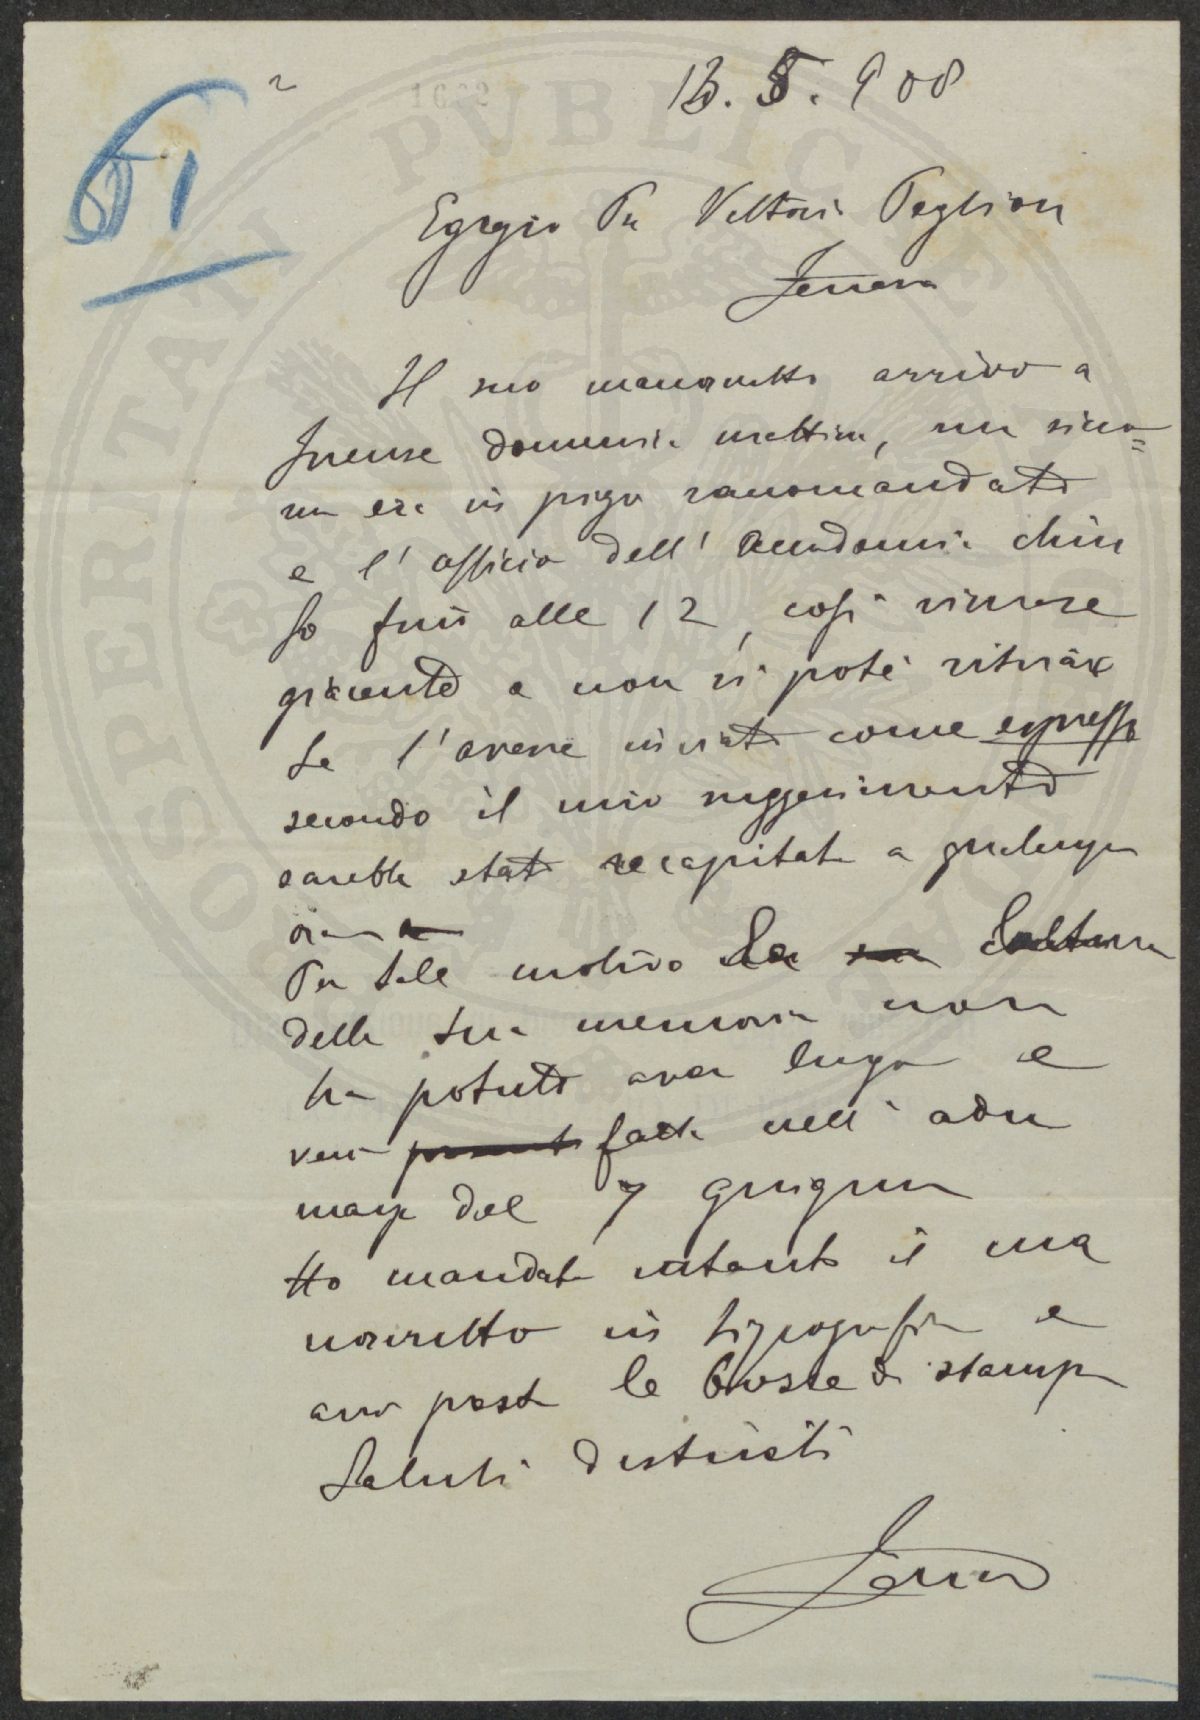 61
13. 5. 908
Egregio Pr Vittorio Peglion
Ferrara
Il suo manoscritto arrivò a
Firenze domenica mattina, ma sicco=
me era in piego raccomandato
e l'ufficio dell'Accademia chiu
so fino alle 12, così rimase
giacente e non si poté ritirare
Se l'avesse inviato come espresso
secondo il mio suggerimento
sarebbe stato recapitato a qualunque
ora
Per tale motivo la lettura
della sua memoria non
ha potuto aver luogo e
verrà fatta nell'adu
nanza del 7 giugno
Ho mandato intanto il ma
noscritto in tipografia e
avrà presto le bozze di stampa
Saluti distinti